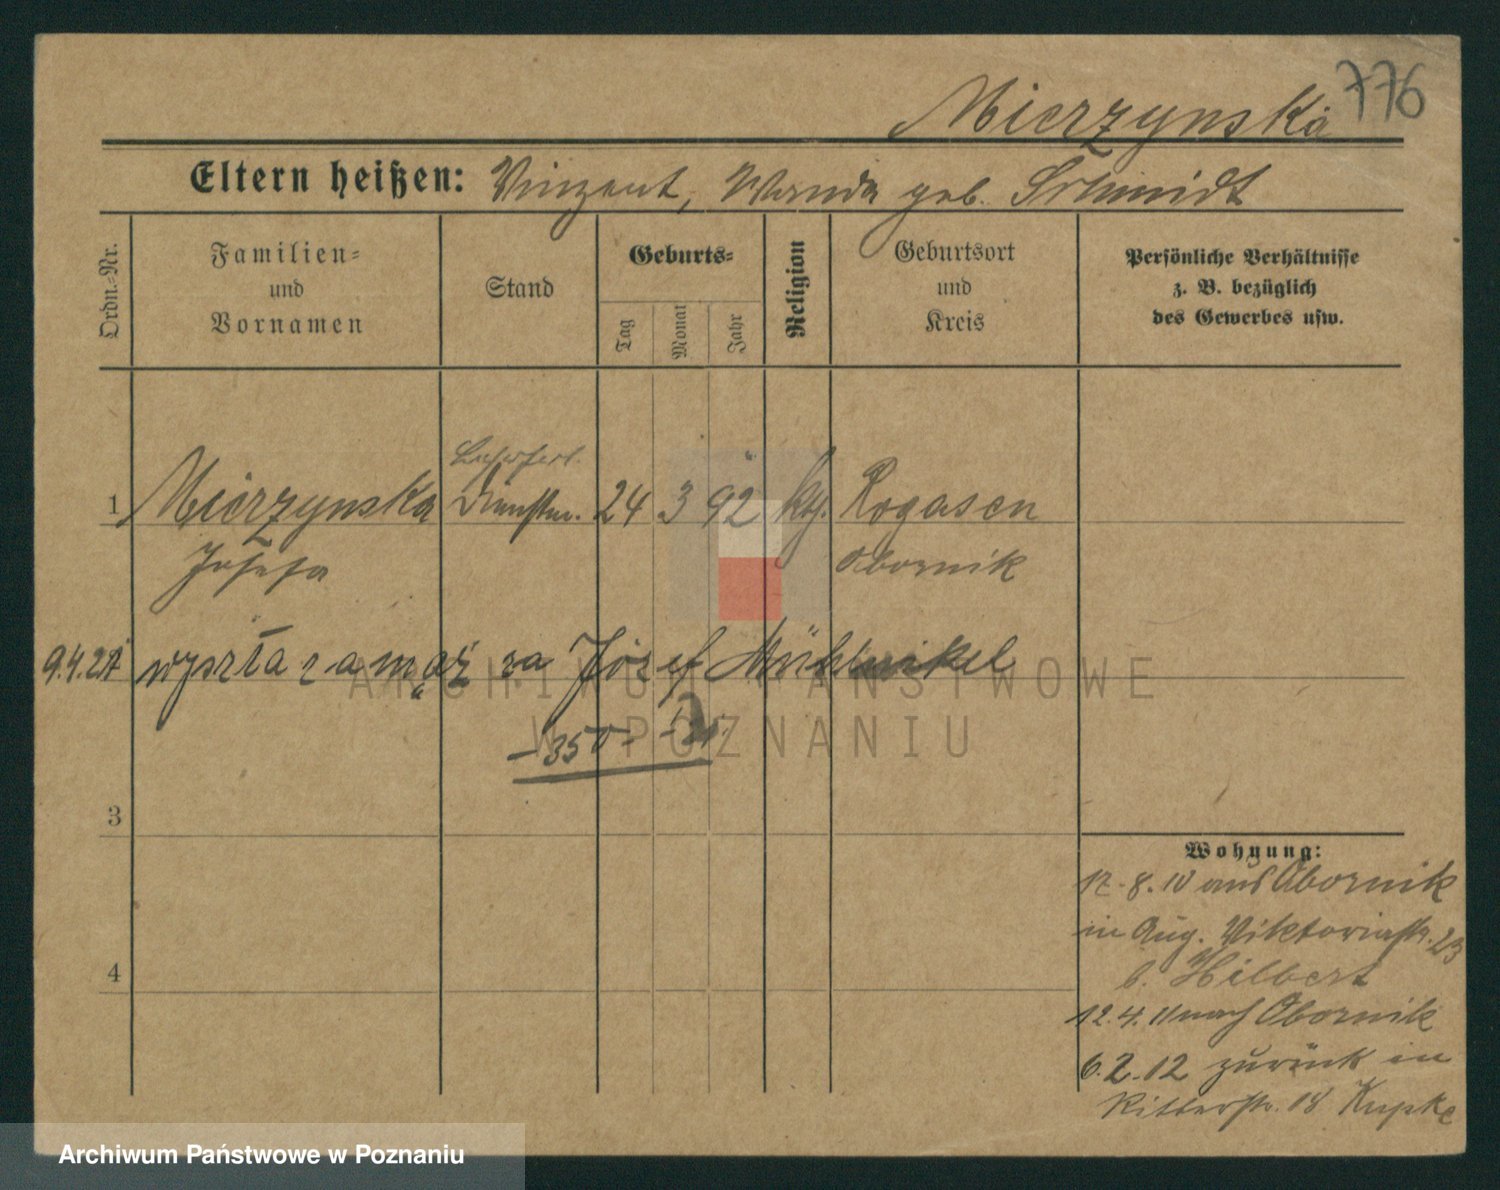 776
Mierzynska
Eltern heißen: Vinzent, Wanda geb. Schmidt
Ordn.-Nr.
Familien-
und
Vornamen
Stand
Geburts-
Tag
Monat
Jahr
Religion
Geburtsort
und
Kreis
Persönliche Verhältnisse
z. B. bezüglich
des Gewerbes usw.
1 Mierzynska Dienstm. 24 3 92 kth. Rogasen
Josefa Obornik
9.4.21 wyszła za mąż za Józef
ARCHIWUM PAŃSTWOWE
W POZNANIU
-350-
3
4
Wohnung:
17.8.10 aus Obornik
in Aug. Viktoriastr. 23
b. Hilbert
12.4.11 nach Obornik
6.2.12 zurück in
Ritterstr. 18 Kupke
Archiwum Państwowe w Poznaniu